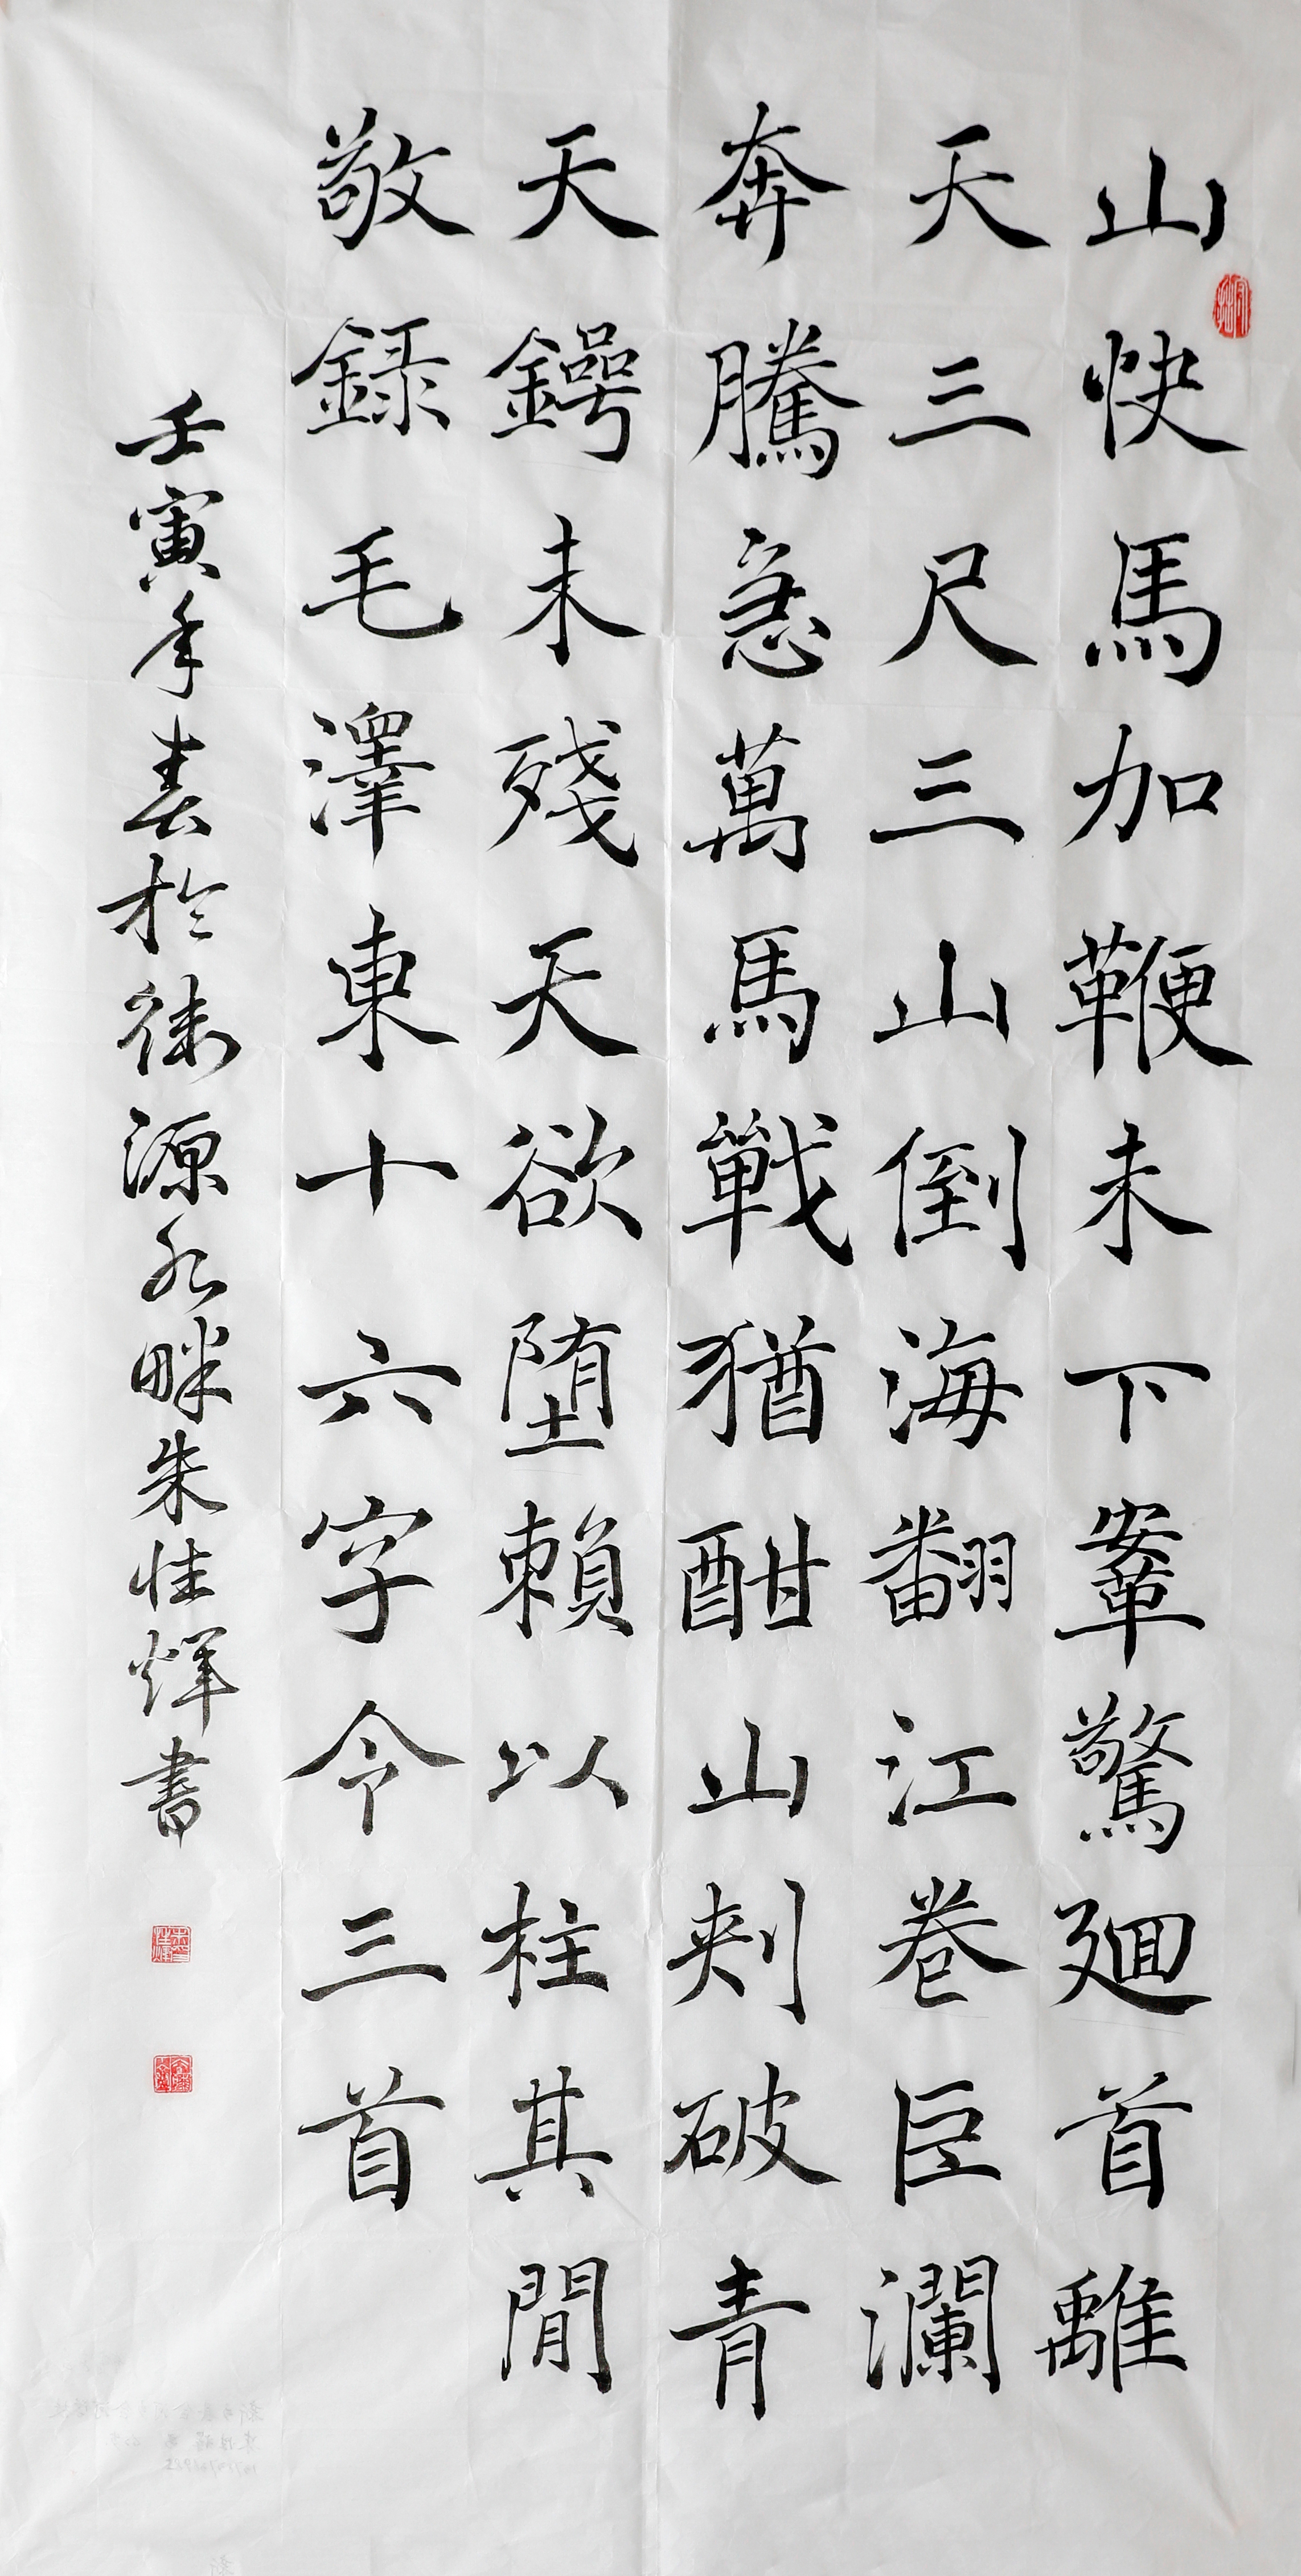 山快馬加鞭未下鞌驚廻首離
天三尺三山倒海翻江卷巨瀾
奔騰急萬馬戰猶酣山刺破青
天鍔未殘天欲墮賴以柱其閒
敬錄毛澤東十六字令三首
壬寅年春於淶源水畔朱性煇書